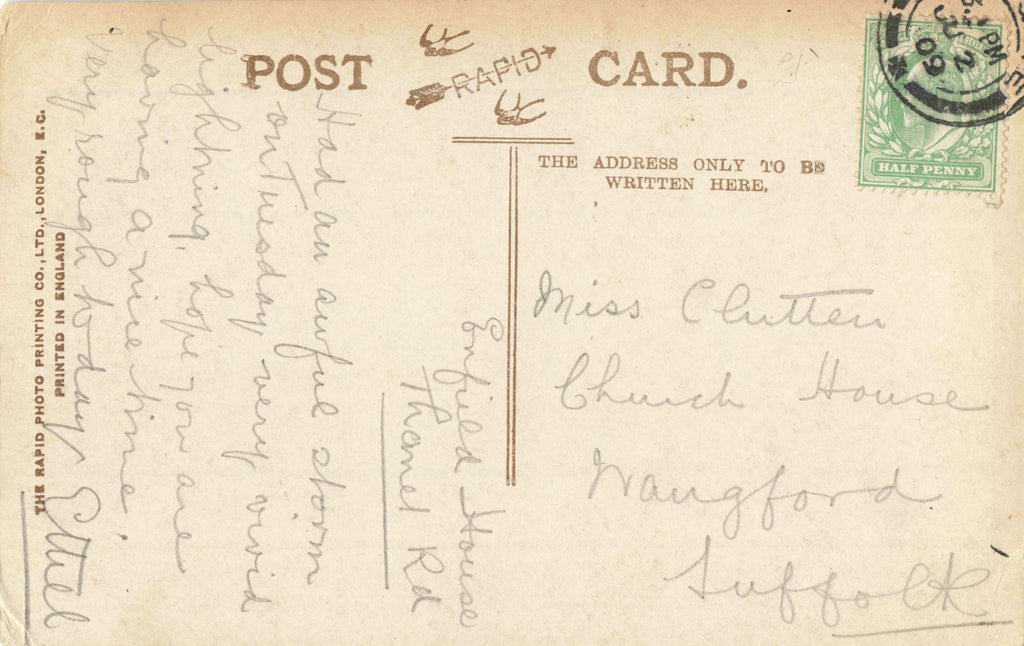 POST CARD.
RAPID
THE ADDRESS ONLY TO BE
WRITTEN HERE.
HALF PENNY
PM
JU 2
09
Miss Clutten
Church House
Wangford
Suffolk
Enfield House
Thanet Rd
Had an awful storm
on Tuesday very vivid
lightning, hope you are
having a nice time,
very rough to-day Ethel
THE RAPID PHOTO PRINTING CO., LTD., LONDON, E.C.
PRINTED IN ENGLAND